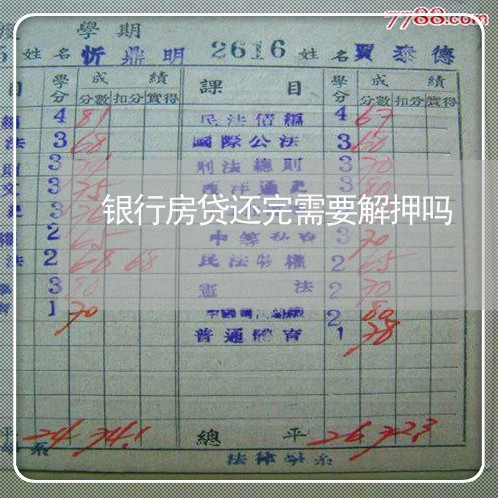 7788.com
學期
姓名 忻鼎明 2616 姓名 賈泰德
目 學分 成績 課目 學分 成績
分數 扣分 實得 分數 扣分 實得
4 81 民法債編 4 67
法 3 68 國際公法 3 60
3 刑法總則 3 70
3 75 西洋通史 3 80
銀行房贷还完需要解押吗
2 65 3 70
法 2 68 68 民法物權 2 65
3 80 憲法 2 70
1 70 2 80
普通體育 1 78
平 24 74.1 總平 26 72.3
系 法律學系